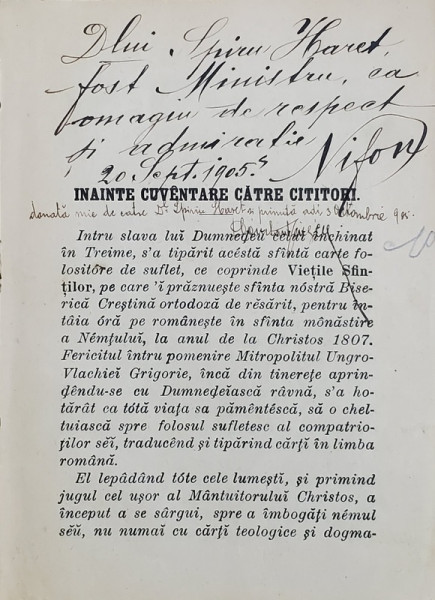 Dlui Spiru Haret,
fost Ministru, ca
omagiu de respect
și admirație
20 Sept. 1905. Nifon
INAINTE CUVÊNTARE CĂTRE CITITORI.
donată mie de catre Dl Spiru Haret și primită adi 3 Octombrie 905.
Intru slava lui Dumneḑeu celui închinat
în Treime, s'a tipărit acéstă sfintă carte fo-
lositóre de suflet, ce coprinde Viețile Sfin-
ților, pe care 'ĭ prăznuește sfinta nóstră Bise-
rică Creștină ortodoxă de rĕsărit, pentru în-
tâia óră pe românește în sfinta mônăstire
a Némțuluĭ, la anul de la Christos 1807.
Fericitul întru pomenire Mitropolitul Ungro-
Vlachieĭ Grigorie, încă din tinerețe aprin-
ḑêndu-se cu Dumneḑeĭască râvnă, s'a ho-
tărât ca tótă viața sa pămêntéscă, să o chel-
tuiască spre folosul sufletesc al compatrio-
ților sĕĭ, traducênd și tipărind cărțĭ în limba
română.
El lepâdând tóte cele lumeștĭ, și primind
jugul cel ușor al Mântuitoruluĭ Christos, a
început a se sârgui, spre a îmbogăți némul
sĕŭ, nu numaĭ cu cărțĭ teologice și dogma-